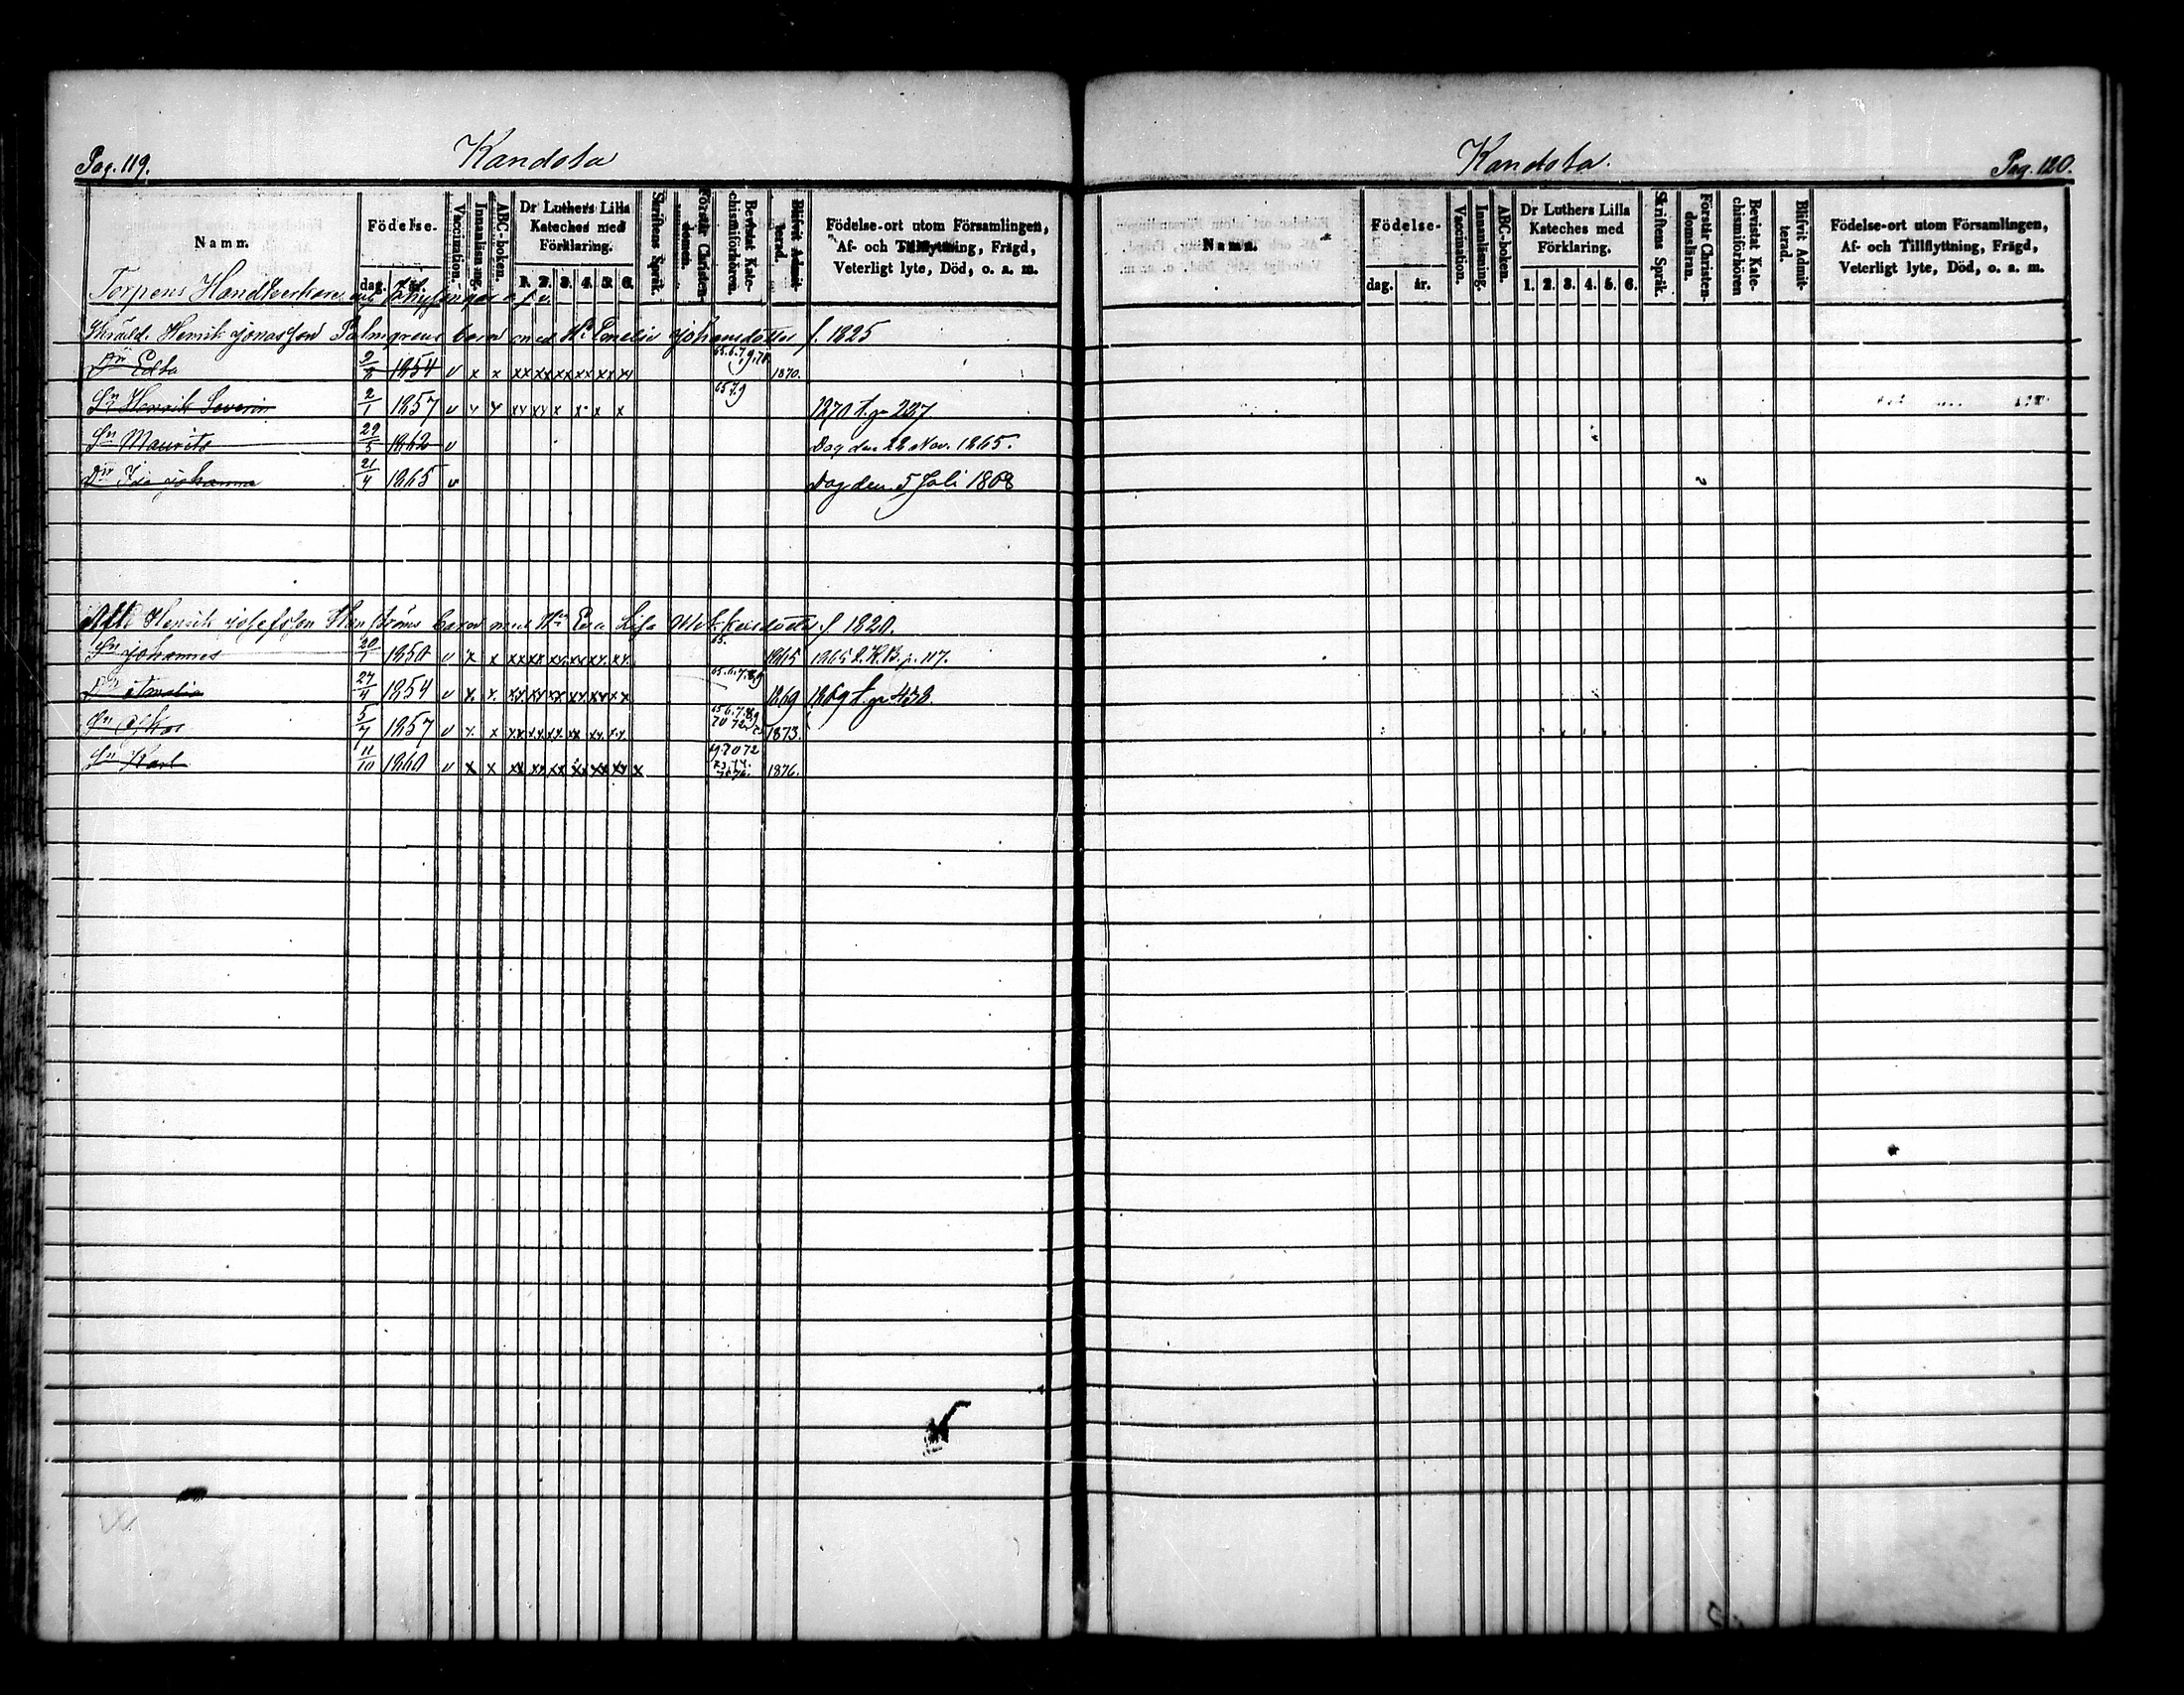 Pag. 119.
Kandola
Namn.
Födelse.
dag.
år.
Vaccination.
Innanläsning.
ABC-boken.
Dr Luthers Lilla Kateches med Förklaring.
1. 2. 3. 4. 5. 6.
Skriftens Språk.
Förstår Christen-domen.
Bevistat Kate-chismiförhören.
Blifvit Admit-terad.
Födelse-ort utom Församlingen, Af- och Tillflyttning, Frägd, Veterligt lyte, Död, o. a. m.
Torpens Handtverkare
Henrik Jonasson Palmgrens barn med H. Emelie Johansdotter f. 1825
Dr Edla 2/9 1854 v x x xx xx xx xx xx xx 65.6.7.9.70 1870.
Sn Henrik Severin 2/1 1857 v 65 7.9 1870 t. pr 227
Sn Maurits 29/5 1862 v Dog den 22 Nov. 1865.
Dr Ida Johanna 21/4 1865 v Dog den 5 Juli 1868
Henrik Josefsson barn med H. Eva Lisa f. 1820.
Sn Johannes 20/1 1850 v x x xx xx xx xx xx xx 65. 1865 1865 K. B. p. 117.
Dr Amalia 27/4 1854 v x x. xx xx xx xx xx xx 65.6.7.8.9 1869 1869 t. pr 438.
Sn Oskar 5/7 1857 v x x xx xx xx xx xx xx 65 6.7.8.9 70 72 1873.
Sn Karl 11/10 1860 v x x xx xx xx xx xx xx x 9.70 72 73.74. 1876.
Kandola.
Pag. 120.
Namn.
Födelse-
dag.
år.
Vaccination.
Innanläsning.
ABC-boken.
Dr Luthers Lilla Kateches med Förklaring.
1. 2. 3. 4. 5. 6.
Skriftens Språk.
Förstår Christen-domsläran.
Bevistat Kate-chismiförhören
Blifvit Admit-terad.
Födelse-ort utom Församlingen, Af- och Tillflyttning, Frägd, Veterligt lyte, Död, o. a. m.